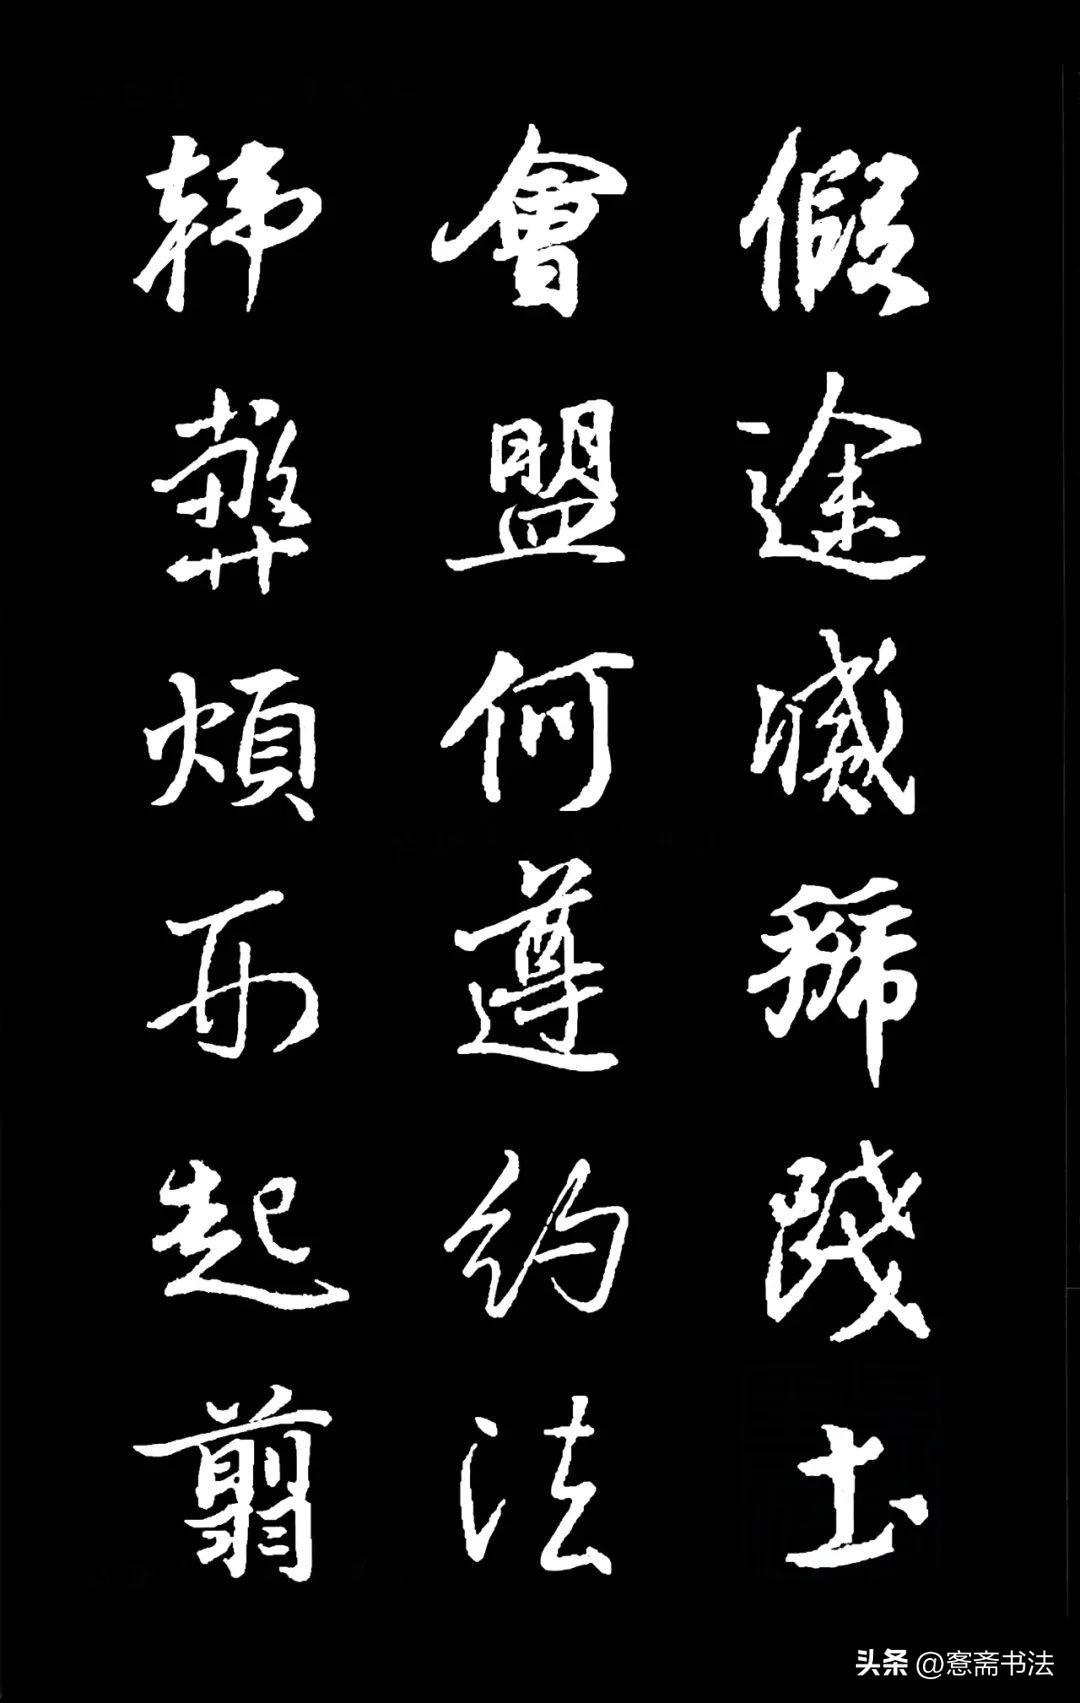 假途滅虢踐土
會盟何遵約法
韩弊煩刑起翦
头条 @愙斋书法